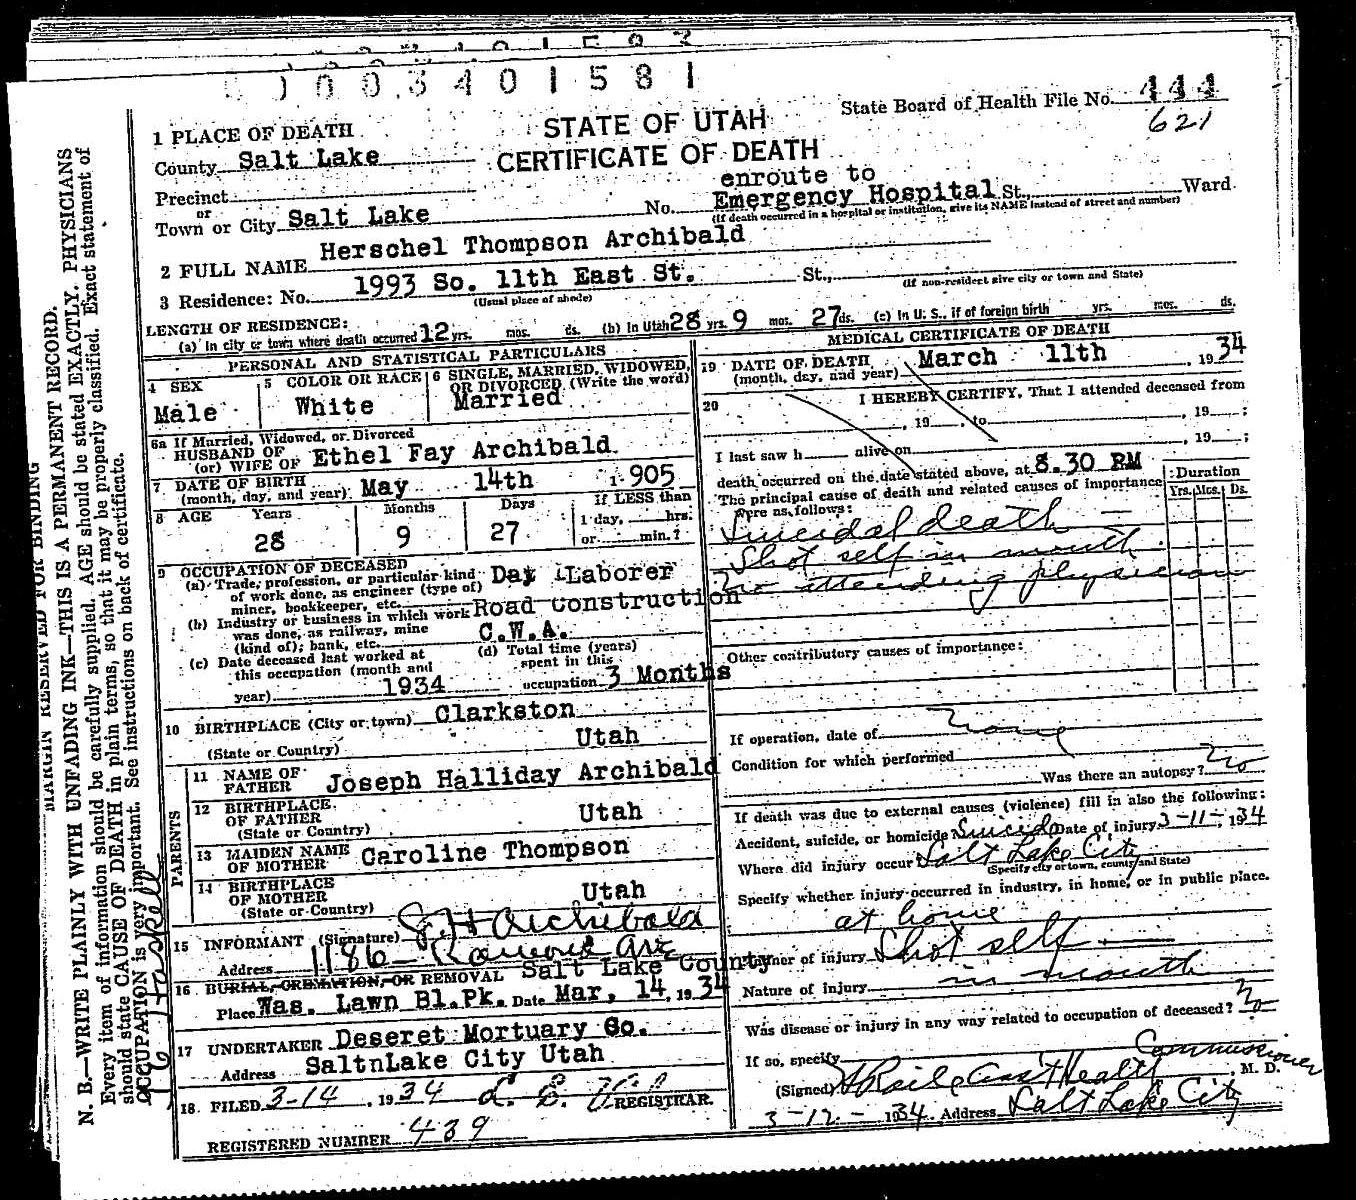 0003401581
State Board of Health File No. 444
621
STATE OF UTAH
CERTIFICATE OF DEATH
1 PLACE OF DEATH
County Salt Lake
Precinct
or
Town or City Salt Lake No. enroute to Emergency Hospital St., Ward
(If death occurred in a hospital or institution, give its NAME instead of street and number)
2 FULL NAME Herschel Thompson Archibald
3 Residence: No. 1993 So. 11th East St. St.,
(Usual place of abode) (If non-resident give city or town and State)
LENGTH OF RESIDENCE:
(a) In city or town where death occurred 12 yrs. mos. ds. (b) In Utah 28 yrs. 9 mos. 27 ds. (c) In U. S., if of foreign birth yrs. mos. ds.
PERSONAL AND STATISTICAL PARTICULARS
4 SEX
Male
5 COLOR OR RACE
White
6 SINGLE, MARRIED, WIDOWED, OR DIVORCED (Write the word)
Married
6a If Married, Widowed, or Divorced
HUSBAND OF
(or) WIFE OF Ethel Fay Archibald
7 DATE OF BIRTH
(month, day, and year) May 14th 1905
8 AGE Years Months Days If LESS than
28 9 27 1 day, hrs.
or min.?
9 OCCUPATION OF DECEASED
(a) Trade, profession, or particular kind of work done, as engineer (type of) miner, bookkeeper, etc. Day Laborer
(b) Industry or business in which work was done, as railway, mine (kind of); bank, etc. Road Construction
C.W.A.
(c) Date deceased last worked at this occupation (month and year) 1934
(d) Total time (years) spent in this occupation 3 Months
10 BIRTHPLACE (City or town) Clarkston
(State or Country) Utah
PARENTS
11 NAME OF FATHER Joseph Halliday Archibald
12 BIRTHPLACE OF FATHER (State or Country) Utah
13 MAIDEN NAME OF MOTHER Caroline Thompson
14 BIRTHPLACE OF MOTHER (State or Country) Utah
15 INFORMANT (Signature) J. H Archibald
Address 1186 Ramona Ave
16 BURIAL, CREMATION, OR REMOVAL Salt Lake County
Place Was. Lawn Bl. Pk. Date Mar, 14, 1934
17 UNDERTAKER Deseret Mortuary Co.
Address SaltnLake City Utah
18. FILED 3-14, 1934 REGISTRAR.
REGISTERED NUMBER 439
MEDICAL CERTIFICATE OF DEATH
19 DATE OF DEATH
(month, day, and year) March 11th, 1934
20 I HEREBY CERTIFY, That I attended deceased from
, 19 , to , 19 ;
I last saw h alive on , 19 ;
death occurred on the date stated above, at 8.30 PM
The principal cause of death and related causes of importance were as follows:
Duration
Yrs. Mos. Ds.
Suicidal death —
Shot self in mouth
No attending physician
Other contributory causes of importance:
If operation, date of None
Condition for which performed
Was there an autopsy? No
If death was due to external causes (violence) fill in also the following:
Accident, suicide, or homicide? Suicide Date of injury 3-11-, 1934
Where did injury occur? Salt Lake City
(Specify city or town, county and State)
Specify whether injury occurred in industry, in home, or in public place.
at home
Manner of injury Shot self —
Nature of injury in mouth
Was disease or injury in any way related to occupation of deceased? No
If so, specify
Commissioner
(Signed) Asst Health, M. D.
3-12-1934. Address Salt Lake City
MARGIN RESERVED FOR BINDING
N. B.—WRITE PLAINLY WITH UNFADING INK—THIS IS A PERMANENT RECORD.
Every item of information should be carefully supplied. AGE should be stated EXACTLY. PHYSICIANS
should state CAUSE OF DEATH in plain terms, so that it may be properly classified. Exact statement of
OCCUPATION is very important. See instructions on back of certificate.